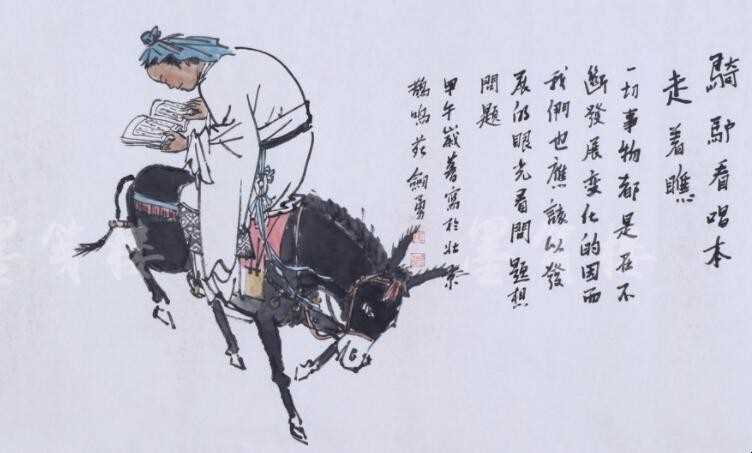 騎馿看唱本
走着瞧
一切事物都是在不
斷發展变化的因而
我們也應該以發
展的眼光看問題想
問題
甲午歲寫於北京
鳴苑劍勇